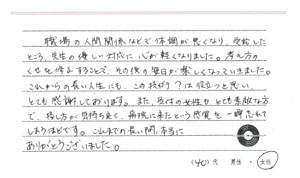 職場の人間関係などで体調が悪くなり、受診した
ところ、先生の優しい対応に心が軽くなりました。考え方の
くせを修正することで、その後の毎日が楽しくなっていきました。
これからの長い人生にも、この技術?は役立つと思い、
とても感謝しております。また、受付の女性がとても素敵な方
で、接し方が気持ち良く、病院に来たということを一瞬忘れて
しまうほどです。これまでの長い間、本当に
ありがとうございました。
(40)代 男性・女性